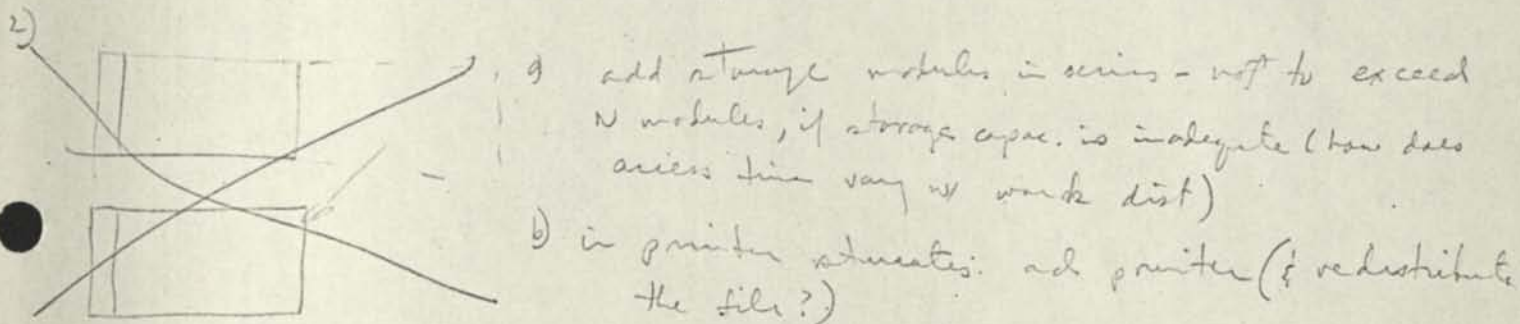 2)
a) add storage modules in series - not to exceed
N modules, if storage capac. is inadequate (how does
access time vary w/ work dist)
b) in printer saturates: add printer (& redistribute
the file?)